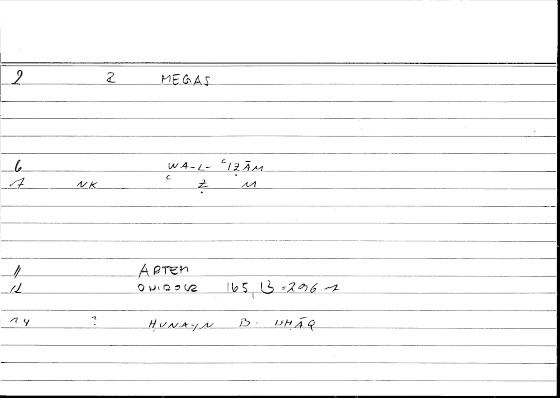 2 2 MEGAS
6 WA-L-ʿIẒĀM
7 NK ʿ Ẓ M
11 ARTEM
12 ONIROCR 165, 13 = 296, 1
14 ? ḤUNAYN B. ISḤĀQ